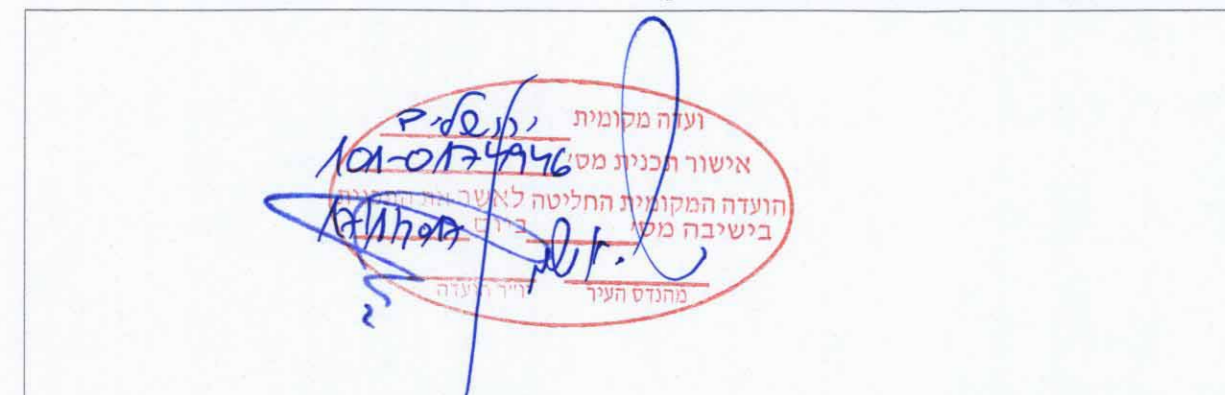 ועדה מקומית ירושלים
אישור תכנית מס׳ 101-0174946
הועדה המקומית החליטה לאשר את התכנית
בישיבה מס׳ ביום
מהנדס העיר יו״ר הועדה